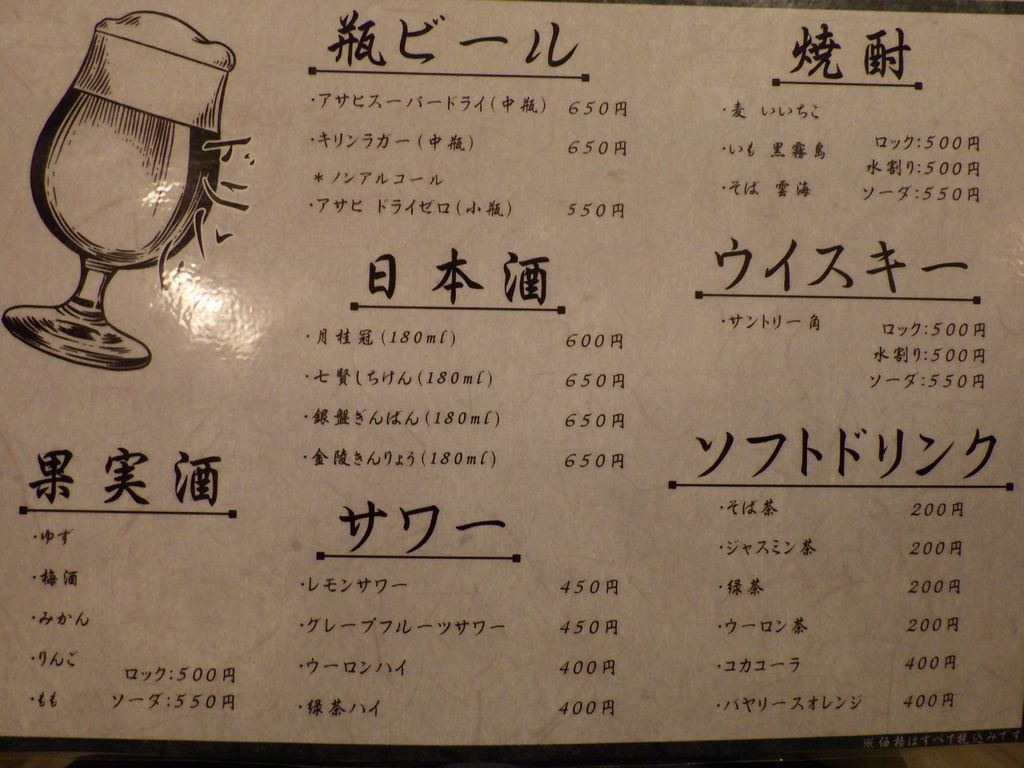 瓶ビール
・アサヒスーパードライ(中瓶) 650円
・キリンラガー(中瓶) 650円
*ノンアルコール
・アサヒ ドライゼロ(小瓶) 550円
日本酒
・月桂冠(180ml) 600円
・七賢しちけん(180ml) 650円
・銀盤ぎんばん(180ml) 650円
・金陵きんりょう(180ml) 650円
サワー
・レモンサワー 450円
・グレープフルーツサワー 450円
・ウーロンハイ 400円
・緑茶ハイ 400円
果実酒
・ゆず
・梅酒
・みかん
・りんご
ロック:500円
・もも ソーダ:550円
焼酎
・麦 いいちこ
・いも 黒霧島 ロック:500円
水割り:500円
・そば 雲海 ソーダ:550円
ウイスキー
・サントリー角 ロック:500円
水割り:500円
ソーダ:550円
ソフトドリンク
・そば茶 200円
・ジャスミン茶 200円
・緑茶 200円
・ウーロン茶 200円
・コカコーラ 400円
・バヤリースオレンジ 400円
※価格はすべて税込みです